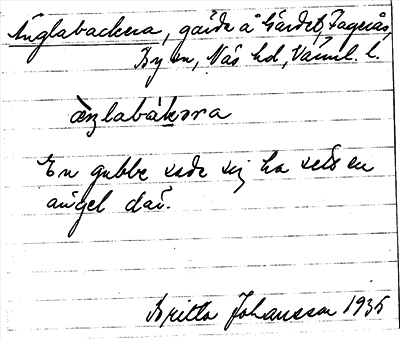 Änglabackera, gärde å Gärdet, Fagerås,
By sn, Näs hd, Värml. l.
æŋlabákəra
En gubbe sade sig ha sett en
ängel där.
Britta Johansson 1935